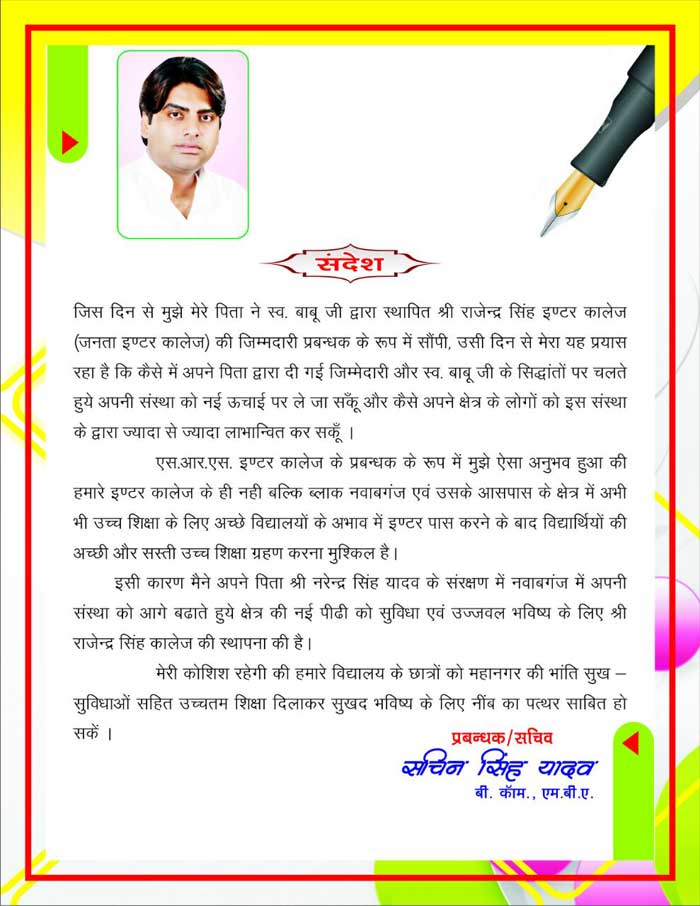 संदेश
जिस दिन से मुझे मेरे पिता ने स्व. बाबू जी द्वारा स्थापित श्री राजेन्द्र सिंह इण्टर कालेज
(जनता इण्टर कालेज) की जिम्मदारी प्रबन्धक के रूप में सौंपी, उसी दिन से मेरा यह प्रयास
रहा है कि कैसे में अपने पिता द्वारा दी गई जिम्मेदारी और स्व. बाबू जी के सिद्धांतों पर चलते
हुये अपनी संस्था को नई ऊचाई पर ले जा सकूँ और कैसे अपने क्षेत्र के लोगों को इस संस्था
के द्वारा ज्यादा से ज्यादा लाभान्वित कर सकूँ ।
एस.आर.एस. इण्टर कालेज के प्रबन्धक के रूप में मुझे ऐसा अनुभव हुआ की
हमारे इण्टर कालेज के ही नही बल्कि ब्लाक नवाबगंज एवं उसके आसपास के क्षेत्र में अभी
भी उच्च शिक्षा के लिए अच्छे विद्यालयों के अभाव में इण्टर पास करने के बाद विद्यार्थियों की
अच्छी और सस्ती उच्च शिक्षा ग्रहण करना मुश्किल है।
इसी कारण मैने अपने पिता श्री नरेन्द्र सिंह यादव के संरक्षण में नवाबगंज में अपनी
संस्था को आगे बढाते हुये क्षेत्र की नई पीढी को सुविधा एवं उज्जवल भविष्य के लिए श्री
राजेन्द्र सिंह कालेज की स्थापना की है।
मेरी कोशिश रहेगी की हमारे विद्यालय के छात्रों को महानगर की भांति सुख –
सुविधाओं सहित उच्चतम शिक्षा दिलाकर सुखद भविष्य के लिए नींब का पत्थर साबित हो
सकें ।
प्रबन्धक/सचिव
सचिन सिंह यादव
बी. कॅाम., एम.बी.ए.